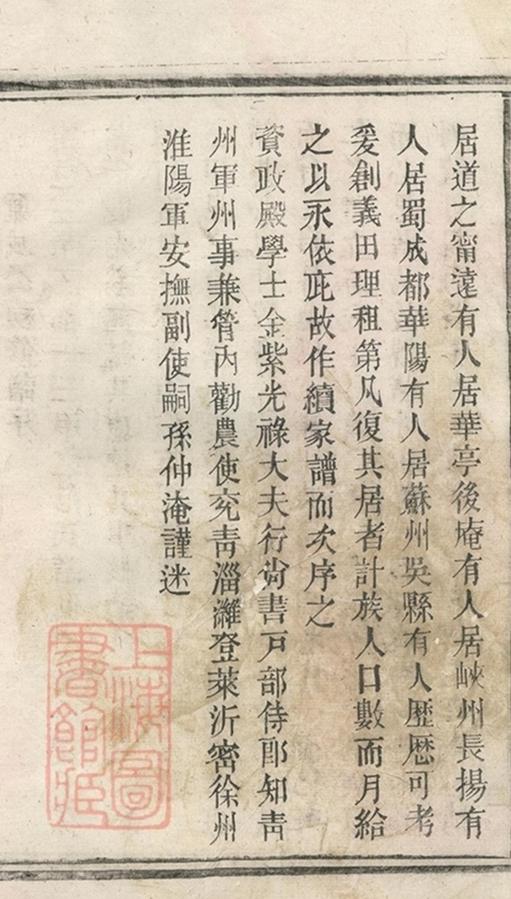 居道之甯遠有人居華亭後庵有人居峽州長揚有
人居蜀成都華陽有人居蘇州吳縣有人歷歷可考
爰創義田理租第凡復其居者計族人口數而月給
之以永依庇故作續家譜而次序之
資政殿學士金紫光祿大夫行尚書戸部侍郎知青
州軍州事兼管內勸農使充青淄濰登萊沂密徐州
淮陽軍安撫副使嗣孫仲淹謹述
上海圖
書館藏